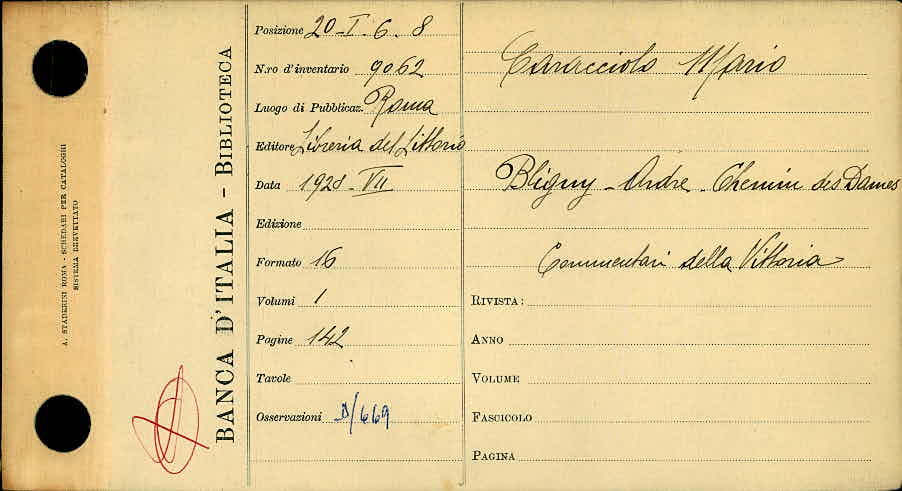 A. STADERINI ROMA - SCHEDARI PER CATALOGHI
SISTEMA BREVETTATO
BANCA D'ITALIA - BIBLIOTECA
Posizione 20-I.6.8
N.ro d'inventario 9062
Luogo di Pubblicaz. Roma
Editore Libreria del Littorio
Data 1928-VII
Edizione
Formato 16
Volumi 1
Pagine 142
Tavole
Osservazioni D/669
Caracciolo Mario
Bligny - Ardre - Chemin des Dames
Commentari della Vittoria
RIVISTA:
ANNO
VOLUME
FASCICOLO
PAGINA